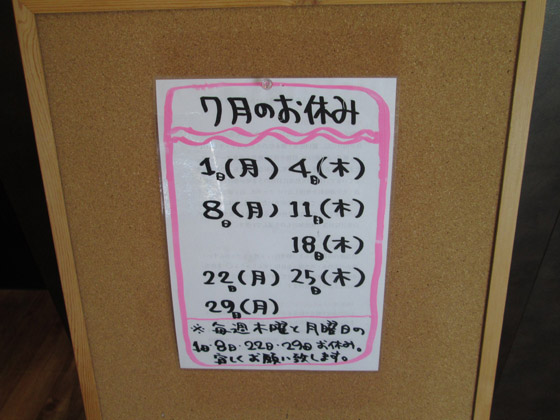 7月のお休み
1日(月) 4日(木)
8日(月) 11日(木)
18日(木)
22日(月) 25日(木)
29日(月)
※毎週木曜と月曜日の
1日・8日・22日・29日お休み。
宜しくお願い致します。